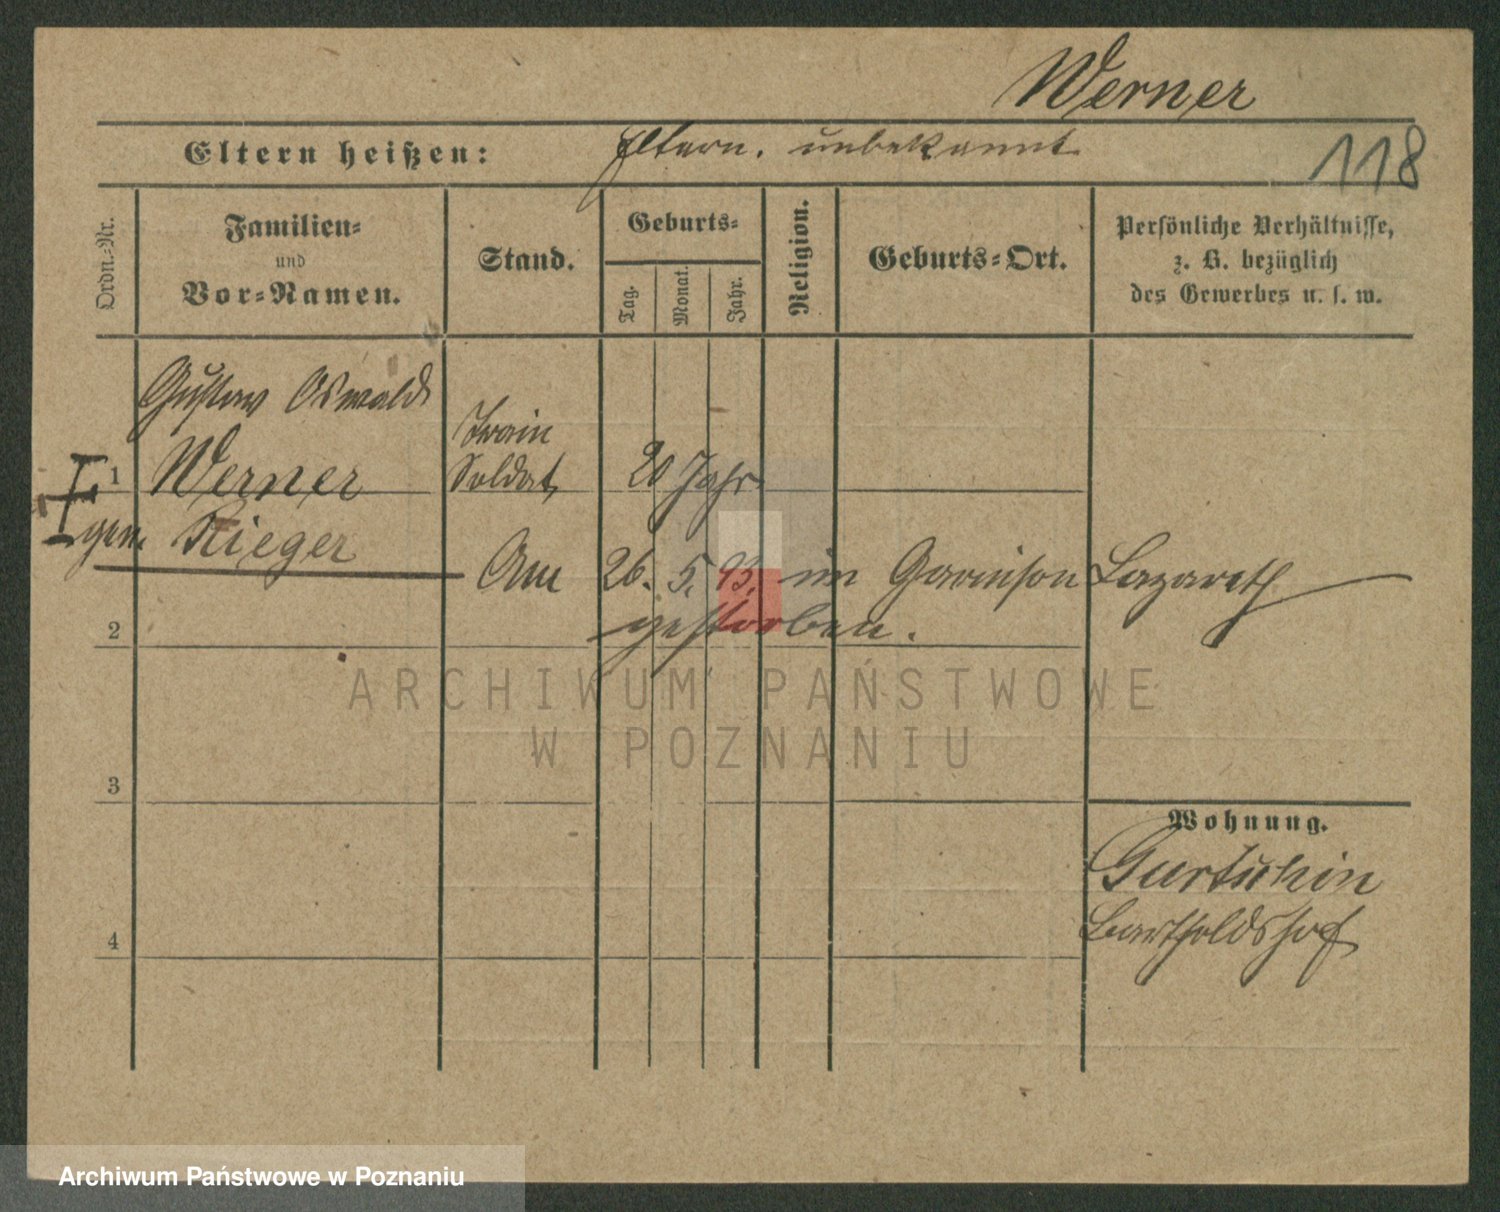 Werner
Eltern heißen: Eltern. unbekannt
118
Ordn.-Nr.
Familien-
und
Vor-Namen.
Stand.
Geburts-
Tag.
Monat.
Jahr.
Religion.
Geburts-Ort.
Persönliche Verhältnisse,
z. B. bezüglich
des Gewerbes u. s. w.
Gustav Oswald
Train
1 Werner Soldat 20 Jahr
gen. Rieger
Am 26. 5. 93. im Garnison Lazareth
gestorben.
2
ARCHIWUM PAŃSTWOWE
W POZNANIU
3
Wohnung.
Gurtschin
Bartholdshof
4
Archiwum Państwowe w Poznaniu